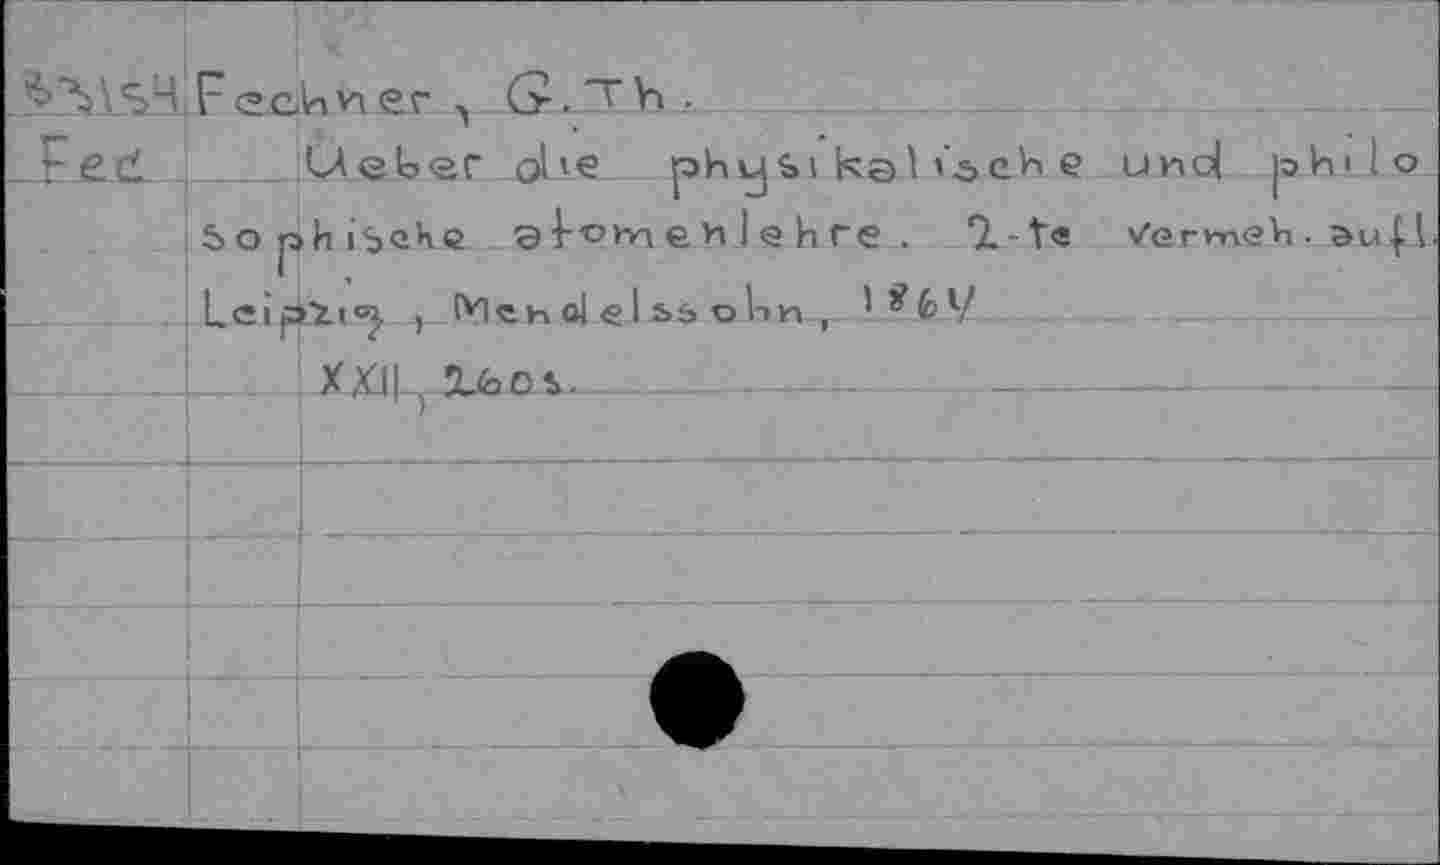 Fechner, G.Th.
Fec Ueber die physikalische und philo
sophische atomenlehre. 2-te vermeh. aufl.
Leipzig, Mendelssohn, 1864
XXII, 260 s.